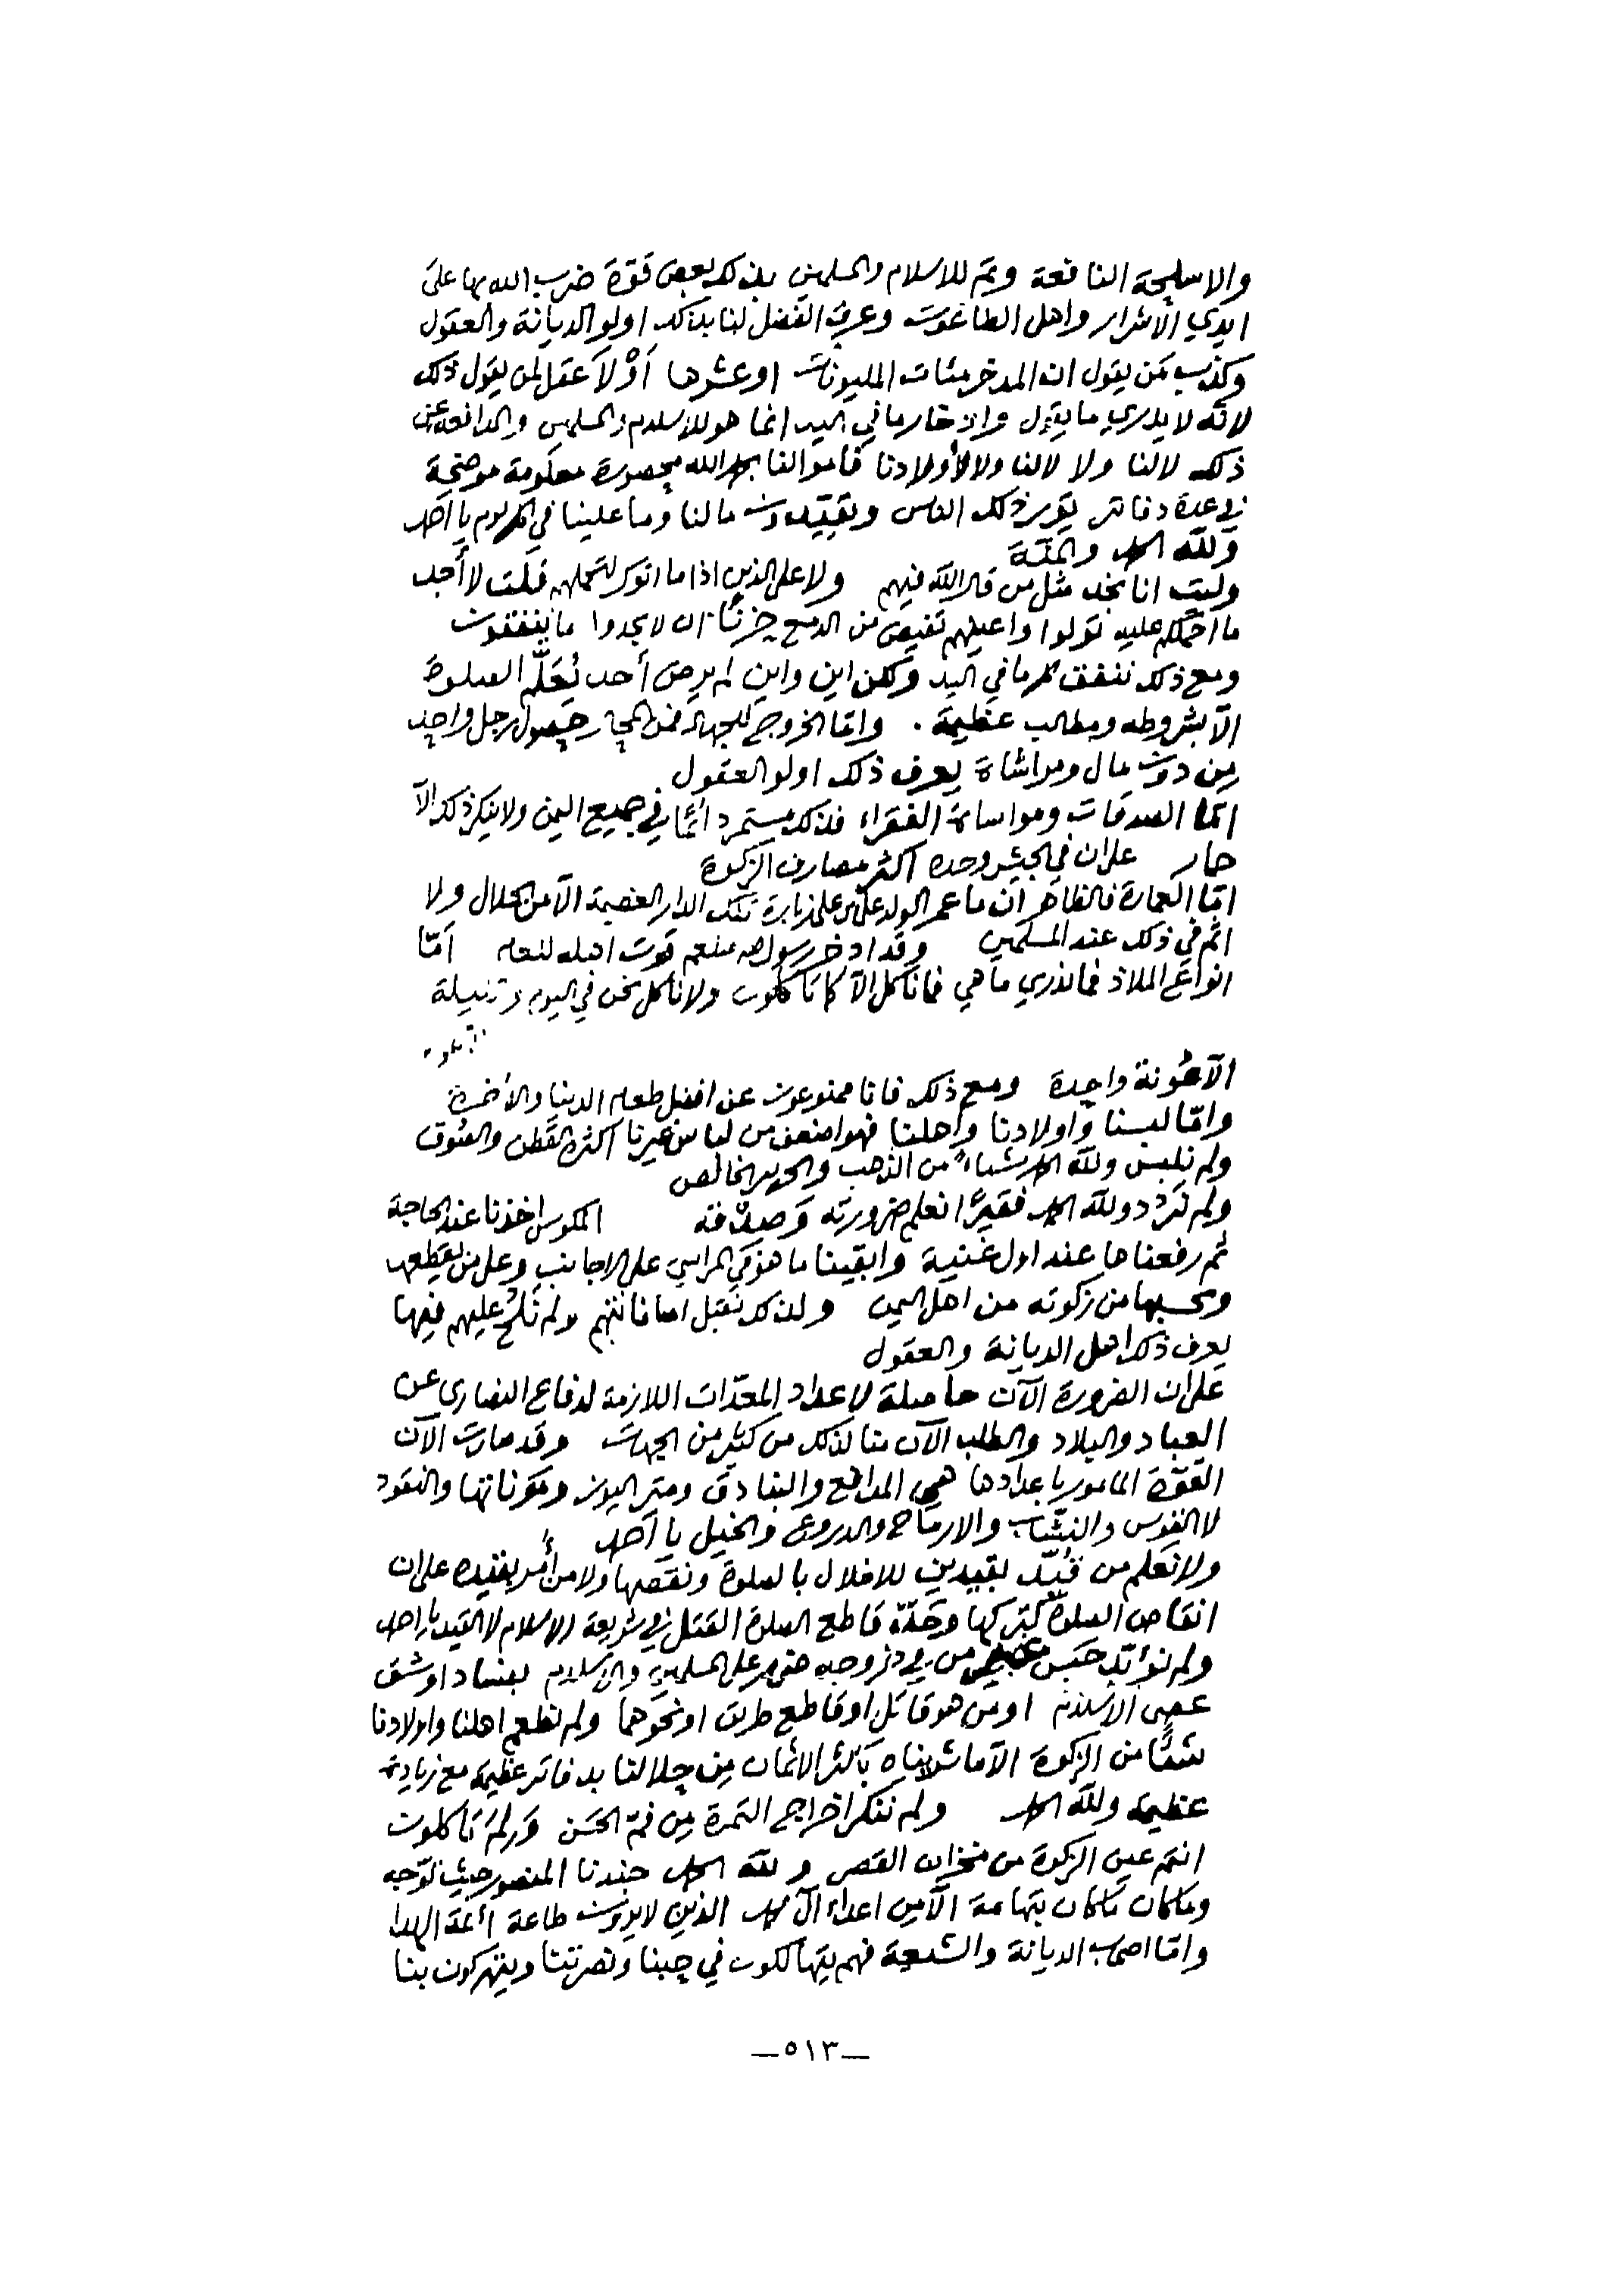 والاسلحة النافعة وتم للاسلام والمسلمين بذلك بعض قوة ضرب الله بها على
ايدي الاشرار واهل الطاغوت وعرف الفضل لنا بذلك اولو الديانة والعقول
وكذب من يقول ان المدخر مئات المليونات او عشرها اَوْلاَ عقل لمن يقول ذلك
لانه لا يدري ما يقول وادخار ما في اليد انما هو للاسلام والمسلمين والمدافعة عن
ذلك لا لنا ولا لالنا ولا لأولادنا فاموالنا بحمد الله محصورة معلومة موضحة
في عدة دفاتر يقرر ذلك الناس ويقيدون ما لنا وما علينا في كل يوم يا احمد
ولله الحمد والمنة
وليت انا نجد مثل من قال الله فيهم ولا على الذين اذا ما اتوك لتحملهم قلت لا أجد
ما احملكم عليه تولوا واعينهم تفيض من الدمع حزنًا ان لا يجدوا ما ينفقون
ومع ذلك ننفق كل ما في اليد ولكن اين واين لم يرض أحد يُعَلّم الصلوة
الا بشروطه ومطالب عظيمة . واما الخروج للجهاد فمن المحال حصول رجل واحد
من دون مال ومواساة يعرف ذلك اولو العقول
اما الصدقات ومواساة الفقراء فذلك مستمر دائمًا في جميع اليمن ولا ينكر ذلك الا
حمار على ان في الجيش وحده اكثر مصارف الزكوة
اما العمارة فالظاهر ان ما عمر الولد علي من على زيادة تلك الدار القضيمة الا من الحلال ولا
اثم في ذلك عند المسلمين وقد ادخر رسول الله صلعم قوت اهله لعام اَمّا
انواع الملاذ فما ندري ما هي فما نأكل الا كما تأكلون ولا نأكل نحن في اليوم وتنيلة
الا مؤنة واحدة ومع ذلك فانا ممنوعون عن افضل طعام الدنيا والأخرة
واما لبسنا واولادنا واهلنا فهو اضعف من لباس غيرنا اكثره القطن والصوف
ولم نلبس ولله الحمد شيئاً من الذهب والحرير الخالص
ولم نَرُدّ ولله الحمد فقيرًا نعلم ضرورته وَصِدْقه المكوس اخذنا عند الحاجة
ثم رفعناها عند اول غنية وابقينا ما هو في المراسي على الاجانب وعلى من يقطعها
ويحسبها من زكوته من اهل اليمن ولذلك نقبل امانتهم ولم نُلحّ عليهم فيها
يعرف ذلك اهل الديانة والعقول
على ان الضرورة الآن حاصلة لاعداد المعدّات اللازمة لدفاع النصارى عن
العباد والبلاد والطلب الآن منا لذلك من كثير من الجهات وقد صارت الآن
القوة المامور باعدادها هي المدافع والبنادق ومتر اليوز ومؤناتها والنقود
لا القوس والنشاب والارماح والدروع والخيل يا احمد
ولا نعلم من قُيّد بقيدين للاخلال بالصلوة ونقصها ولا من أُمر بقيده على ان
انقاص الصلوة كتركها وحدّ قاطع الصلوة القتل في شريعة الاسلام لا القيد يا احمد
ولم نؤبّد حبس من في خروجه ضرر على المسلمين والاسلام بفساد او شق
عصى الاسلام او من هو قاتل او قاطع طريق او نحوهما ولم نطعم اهلنا واولادنا
شيئًا من الزكوة الا ما شريناه بأكثر الاثمان من حلالنا بدفاتر عظيمة مع زيادة
عظيمة ولله الحمد ولم ننكر اخراج التمرة من فم الحَسَن وَلِمَ تأكلون
انتم عين الزكوة من مخزان القصر ولله الحمد جندنا المنصور حيث توجه
وما كان ما كان بتهامة الا من اعداء آل محمد الذين لا يرون طاعة ائمة الهدا
واما اصحاب الديانة والشيعة فهم يتهالكون في حبنا ونصرتنا ويتبركون بنا
—٥١٣—